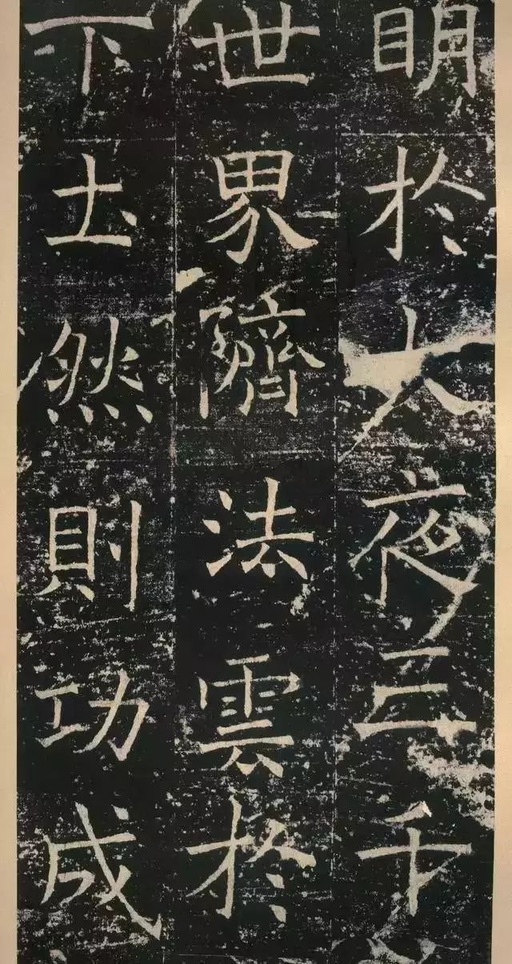 明於大夜三千
世界隮法雲於
下土然則功成